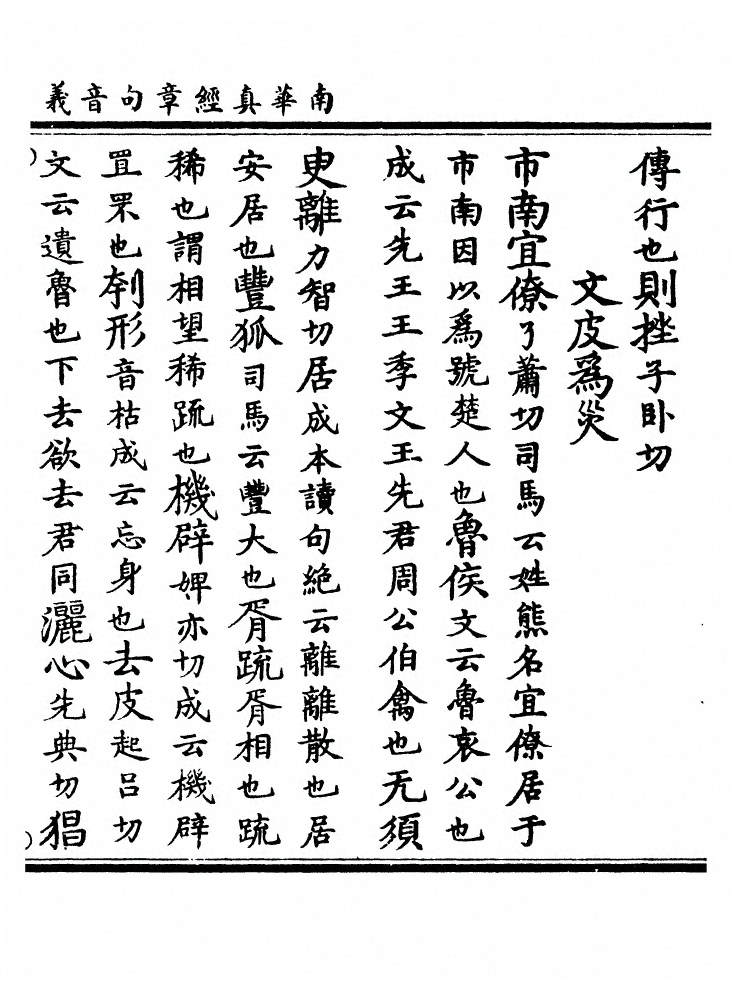 南華真經章句音義
傳行也則挫子卧切
文皮爲災
市南宜僚了蕭切司馬云姓熊名宜僚居于
市南因以爲號楚人也魯侯文云魯哀公也
成云先王王季文王先君周公伯禽也无須
㬰離力智切居成本讀句絶云離離散也居
安居也豐狐司馬云豐大也胥疏胥相也疏
稀也謂相望稀疏也機辟婢亦切成云機辟
罝罘也刳形音枯成云忘身也去皮起吕切
文云遺魯也下去欲去君同灑心先典切猖